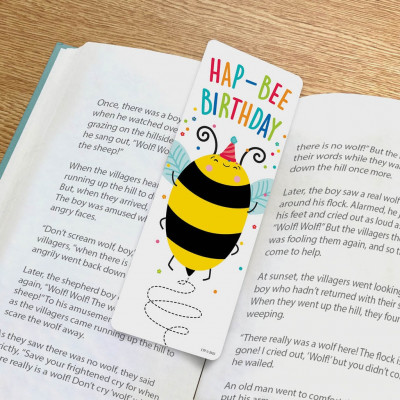 HAP-BEE
BIRTHDAY
Once, there was a boy
when he watched over
grazing on the hillside
he sang out, "Wolf! Wo
the sheep!"
When the villagers hear
running up the hill to d
But, when they arrived,
The boy was amused w
angry faces.
"Don't scream wolf, boy,
villagers, "when there is
angrily went back down
Later, the shepherd boy
again, "Wolf! Wolf! The w
sheep!" To his amusemen
as the villagers came running up the hill to
scare the wolf away.
As they saw there was no wolf, they said
strictly, "Save your frightened cry for when
ere really is a wolf! Don't cry 'wolf'
there is no wolf!" But the
their words while they wa
down the hill once more.
Later, the boy saw a real wolf
around his flock. Alarmed, he j
his feet and cried out as loud as
"Wolf! Wolf!" But the villagers th
was fooling them again, and so t
come to help.
At sunset, the villagers went looking
boy who hadn't returned with their s
When they went up the hill, they fou
weeping.
"There really was a wolf here! The flock is
gone! I cried out, 'Wolf!' but you didn't co
he wailed.
An old man went to comfort